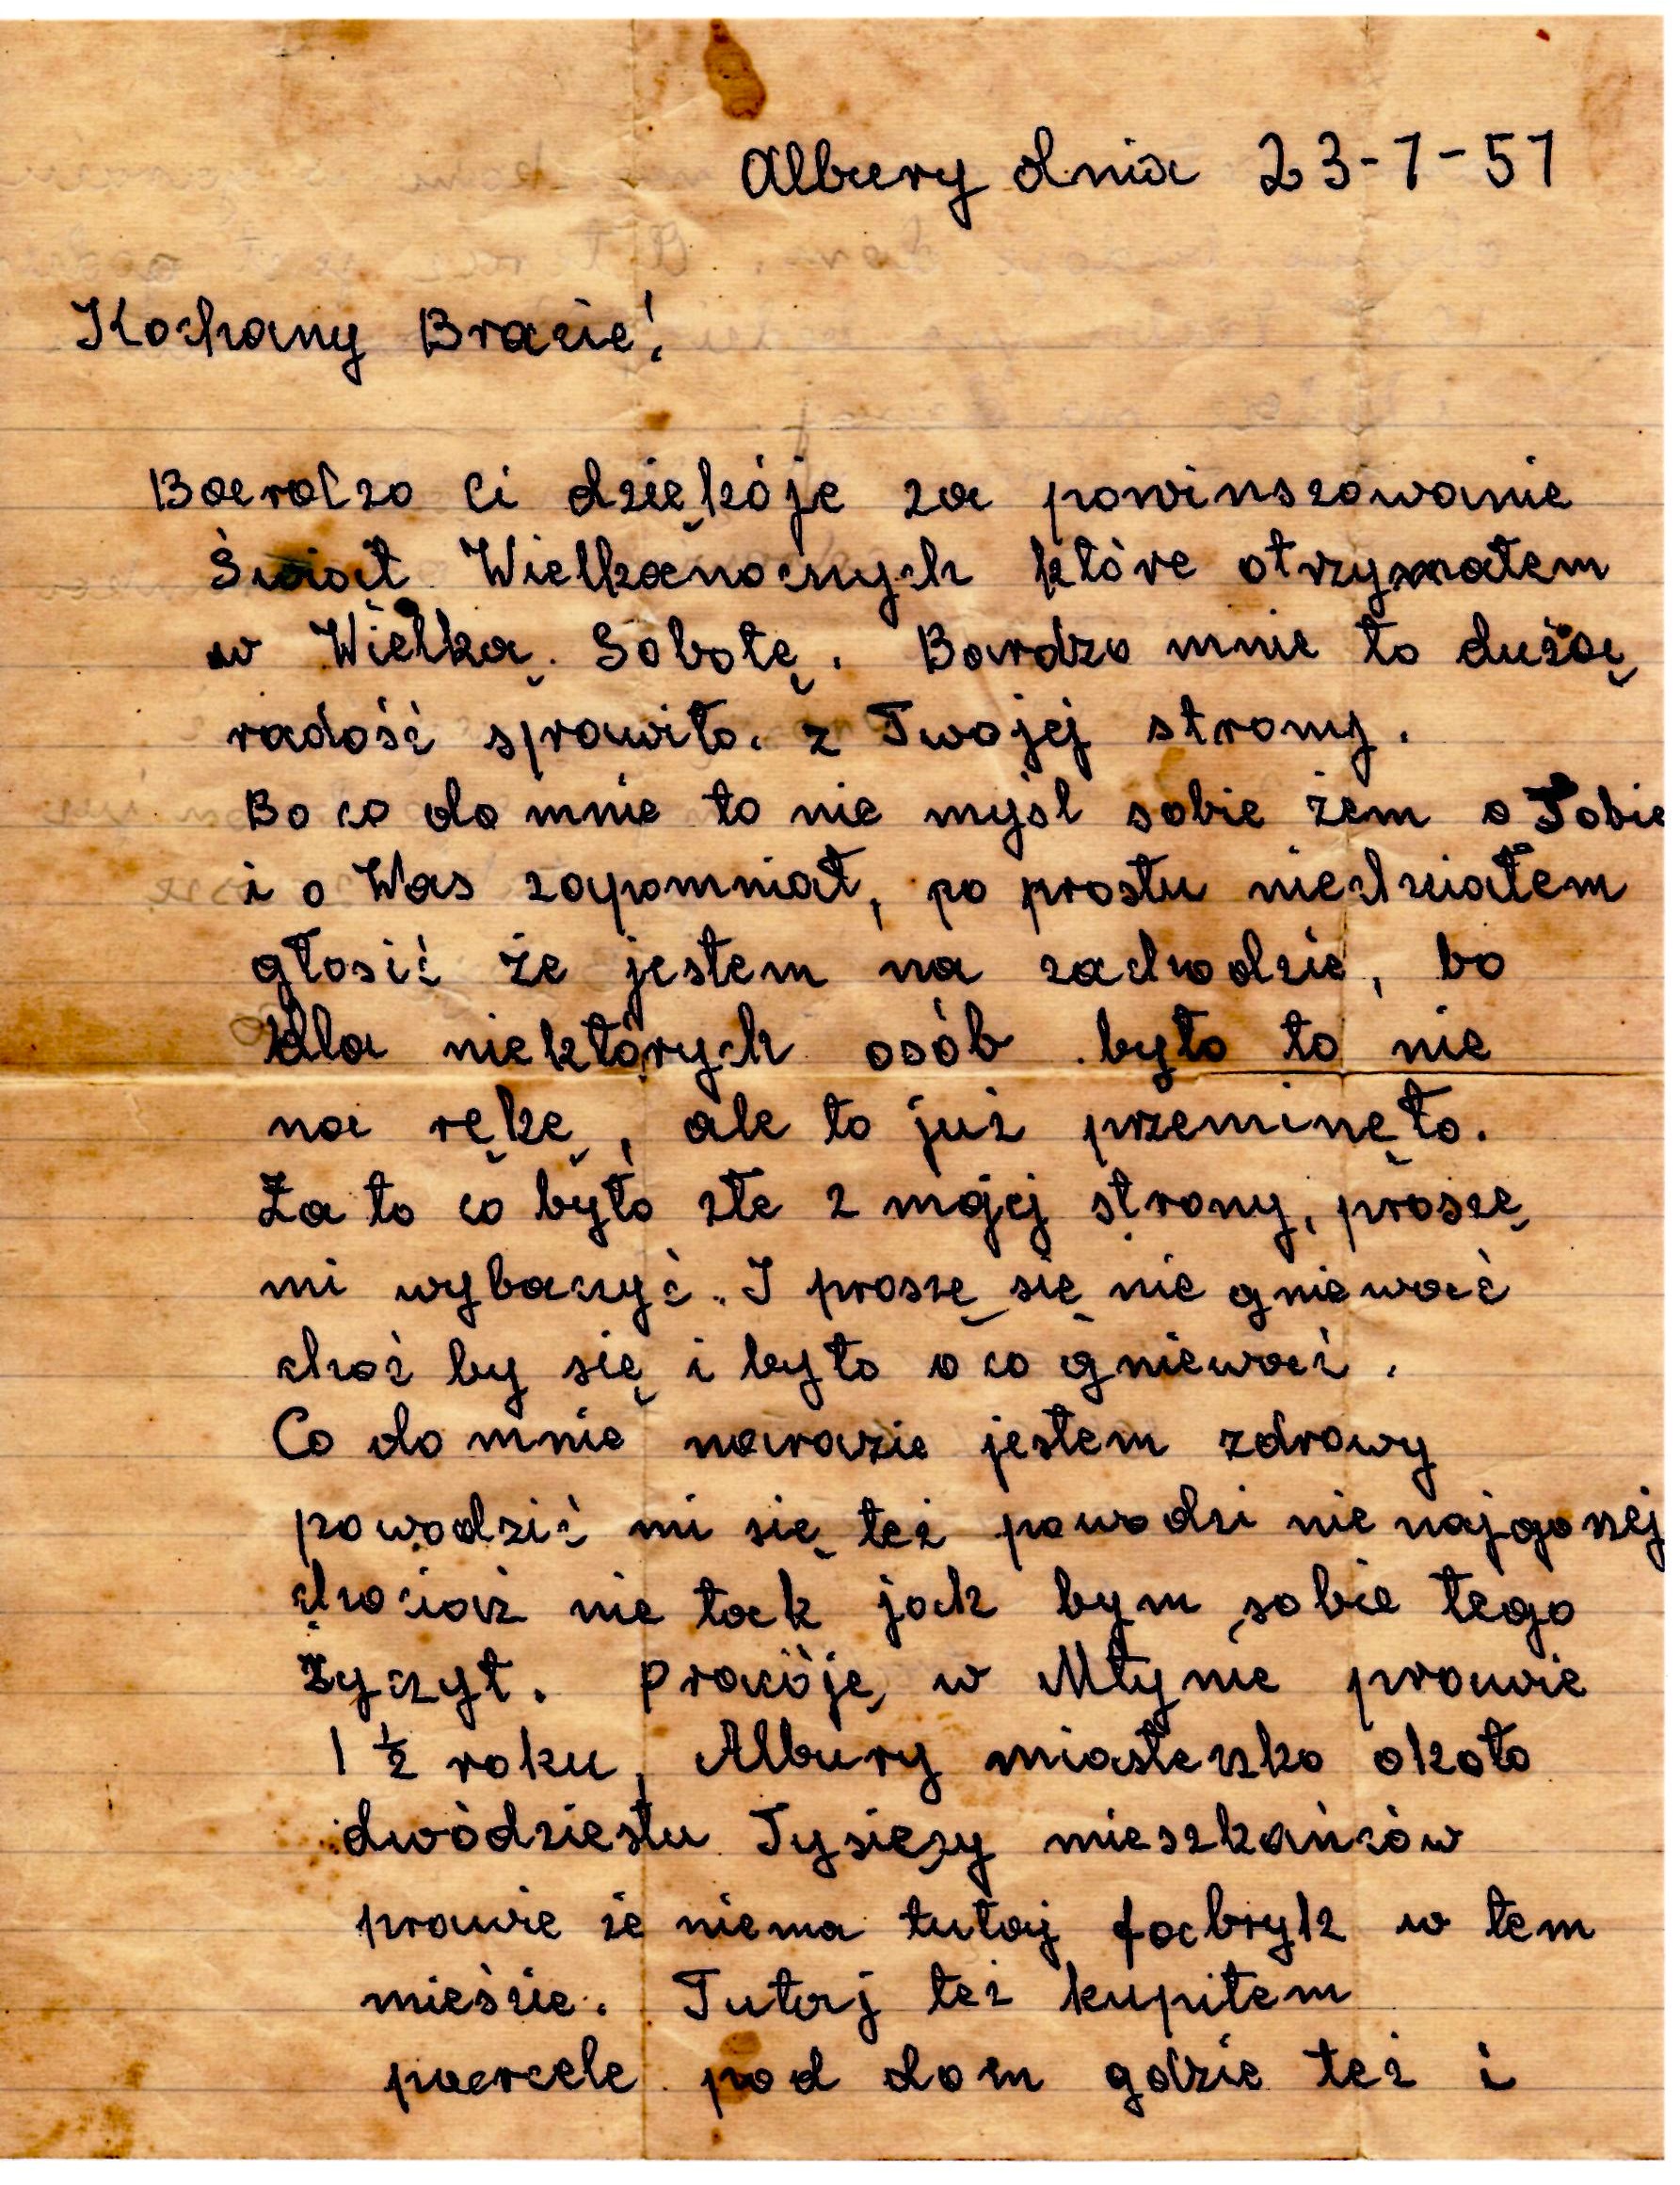 Albury dnia 23-7-57
Kochany Bracie!
Bardzo Ci dziękóje za powinszowanie
Świąt Wielkanocnych które otrzymałem
w Wielką Sobotę. Bardzo mnie to dużą
radość sprawiło. z Twojej strony.
Bo co do mnie to nie myśl sobie żem o Tobie
i o Was zapomniał, po prostu niechciałem
głosić że jestem na zachodzie, bo
dla niektórych osób było to nie
na rękę, ale to już przeminęło.
Za to co było złe z mojej strony, proszę
mi wybaczyć. I proszę się nie gniewać
choć by się i było o co gniewać.
Co do mnie narazie jestem zdrowy
powodzić mi się też powodzi nie najgorzej
chociaż nie tak jak bym sobie tego
życzył. Pracóję w Młynie prawie
1 ½ roku, Albury miasteczko około
dwódziestu Tysięcy mieszkańców
prawie że niema tutaj fabryk w tem
mieście. Tutaj też kupiłem
parcele pod dom gdzie też i